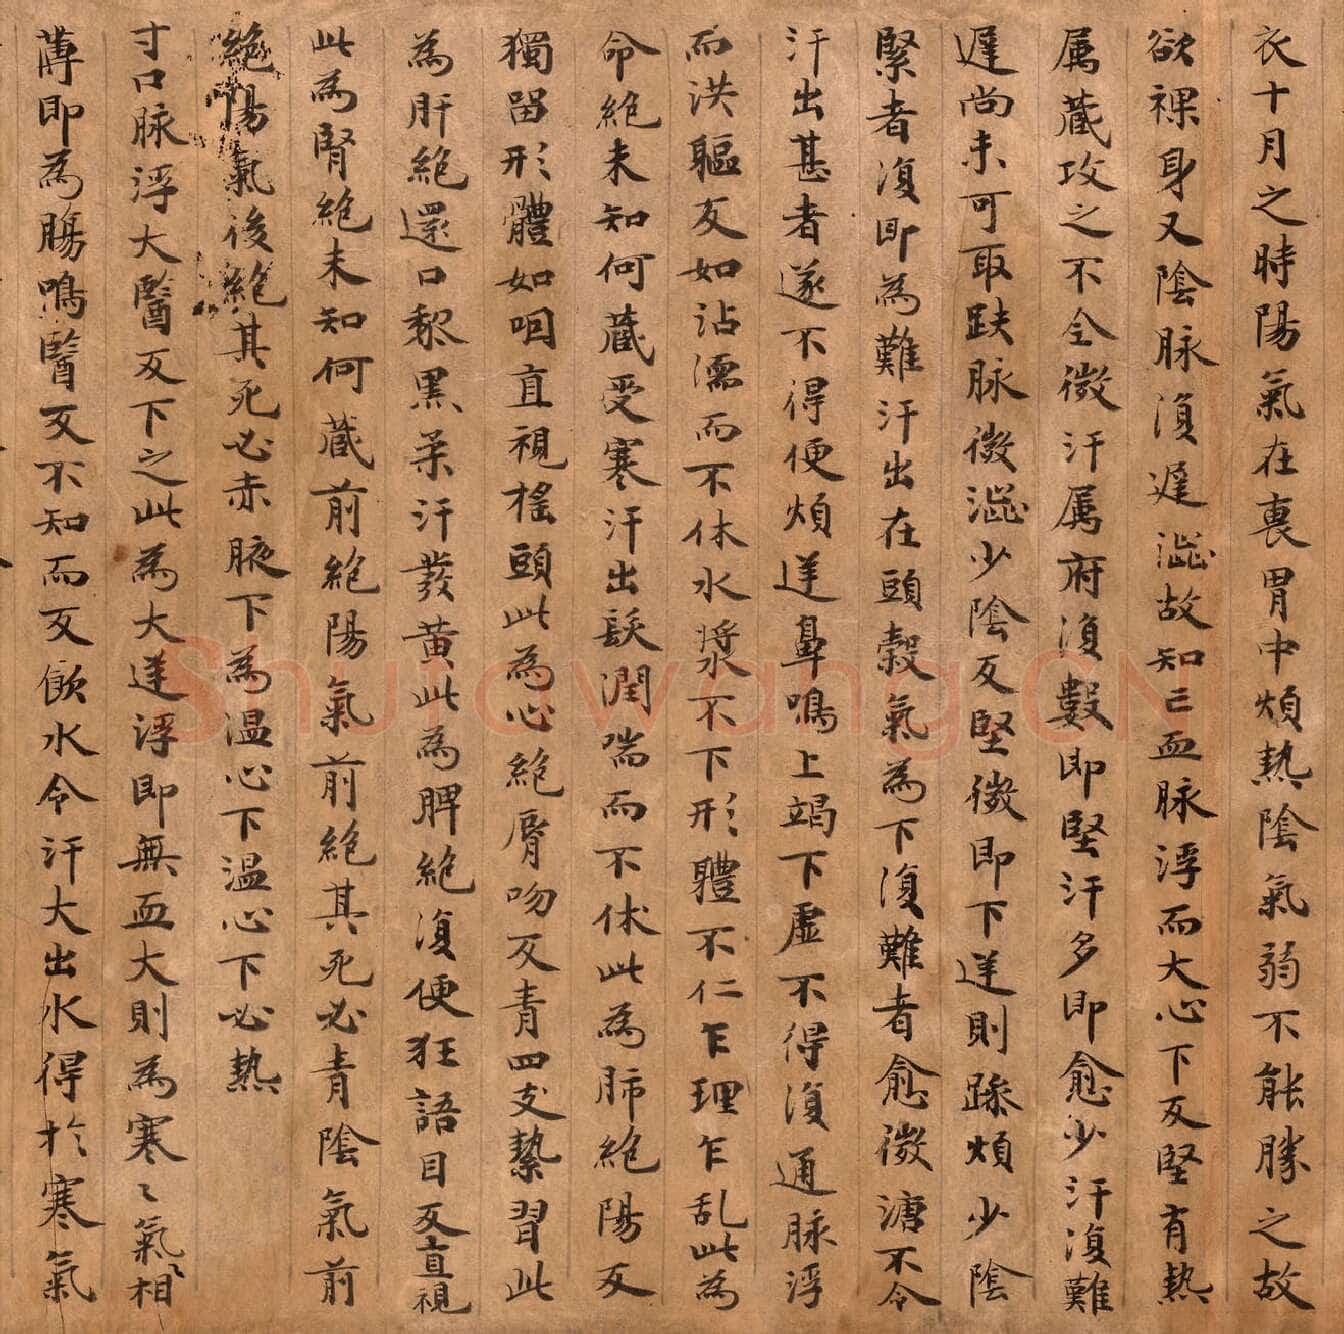 衣十月之時陽氣在裏胃中煩熱陰氣弱不能勝之故
欲裸身又陰脉復遲澁故知亡血脉浮而大心下反堅有熱
属藏攻之不令微汗属府復數即堅汗多即愈少汗復難
遲尚未可取趺脉微澁少陰反堅微即下逆則躁煩少陰
緊者復即為難汗出在頭穀氣為下復難者愈微溏不令
汗出甚者遂不得便煩逆鼻鳴上竭下虛不得復通脉浮
而洪軀反如沾濡而不休水漿不下形體不仁乍理乍乱此為
命絶未知何藏受寒汗出髮潤喘而不休此為肺絶陽反
獨留形體如咽直視搖頭此為心絶脣吻反青四支漐習此
為肝絶還口黎黑柔汗發黄此為脾絶復便狂語目反直視
此為腎絶未知何藏前絶陽氣前絶其死必青陰氣前
絶陽氣後絶其死必赤腋下為温心下温心下必熱
寸口脉浮大醫反下之此為大逆浮即無血大則為寒〻氣相
薄即為腸鳴醫反不知而反飲水令汗大出水得於寒氣
Shufawang.CN